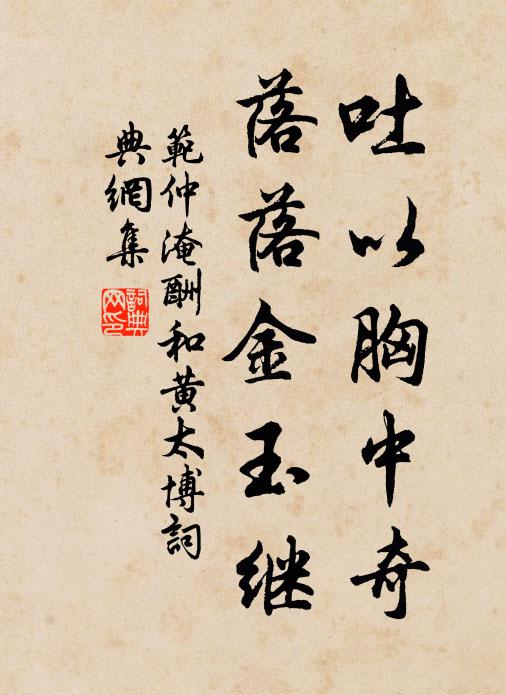 吐以胸中奇
落落金玉继
範仲淹酬和黄太博詞
典網集
詞典网印